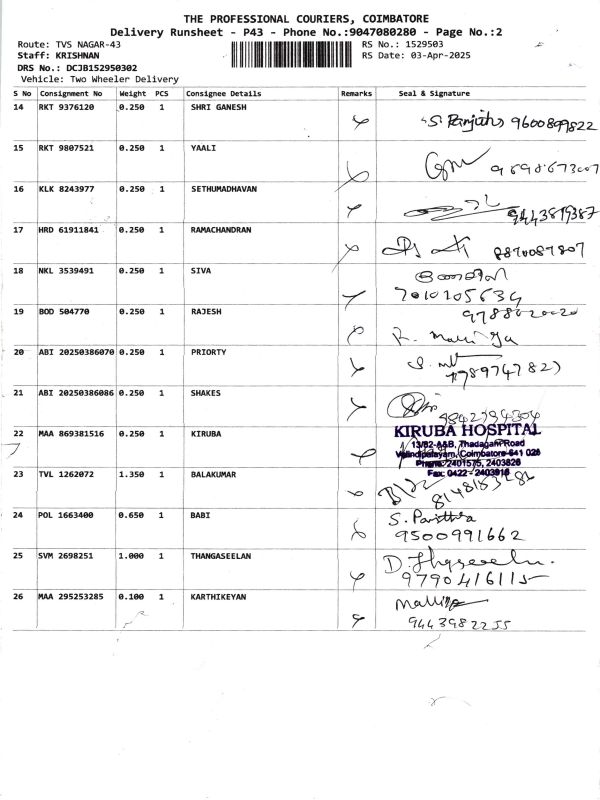 THE PROFESSIONAL COURIERS, COIMBATORE
Delivery Runsheet - P43 - Phone No.:9047080280 - Page No.:2
Route: TVS NAGAR-43
RS No.: 1529503
Staff: KRISHNAN
RS Date: 03-Apr-2025
DRS No.: DCJB152950302
Vehicle: Two Wheeler Delivery
S No Consignment No Weight PCS Consignee Details Remarks Seal & Signature
14 RKT 9376120 0.250 1 SHRI GANESH
9600899822
15 RKT 9807521 0.250 1 YAALI
16 KLK 8243977 0.250 1 SETHUMADHAVAN
9443819387
17 HRD 61911841 0.250 1 RAMACHANDRAN
8870087807
18 NKL 3539491 0.250 1 SIVA
7010205634
19 BOD 504770 0.250 1 RAJESH
20 ABI 20250386070 0.250 1 PRIORTY
21 ABI 20250386086 0.250 1 SHAKES
9842394304
22 MAA 869381516 0.250 1 KIRUBA
KIRUBA HOSPITAL
13/82-A&B, Thadagam Road
Velindipalayam, Coimbatore-641 025
Phone: 2401575, 2403826
Fax: 0422 - 2403918
23 TVL 1262072 1.350 1 BALAKUMAR
8148153281
24 POL 1663400 0.650 1 BABI
S. Pavithra
9500991662
25 SVM 2698251 1.000 1 THANGASEELAN
9790416115
26 MAA 295253285 0.100 1 KARTHIKEYAN
9443982255